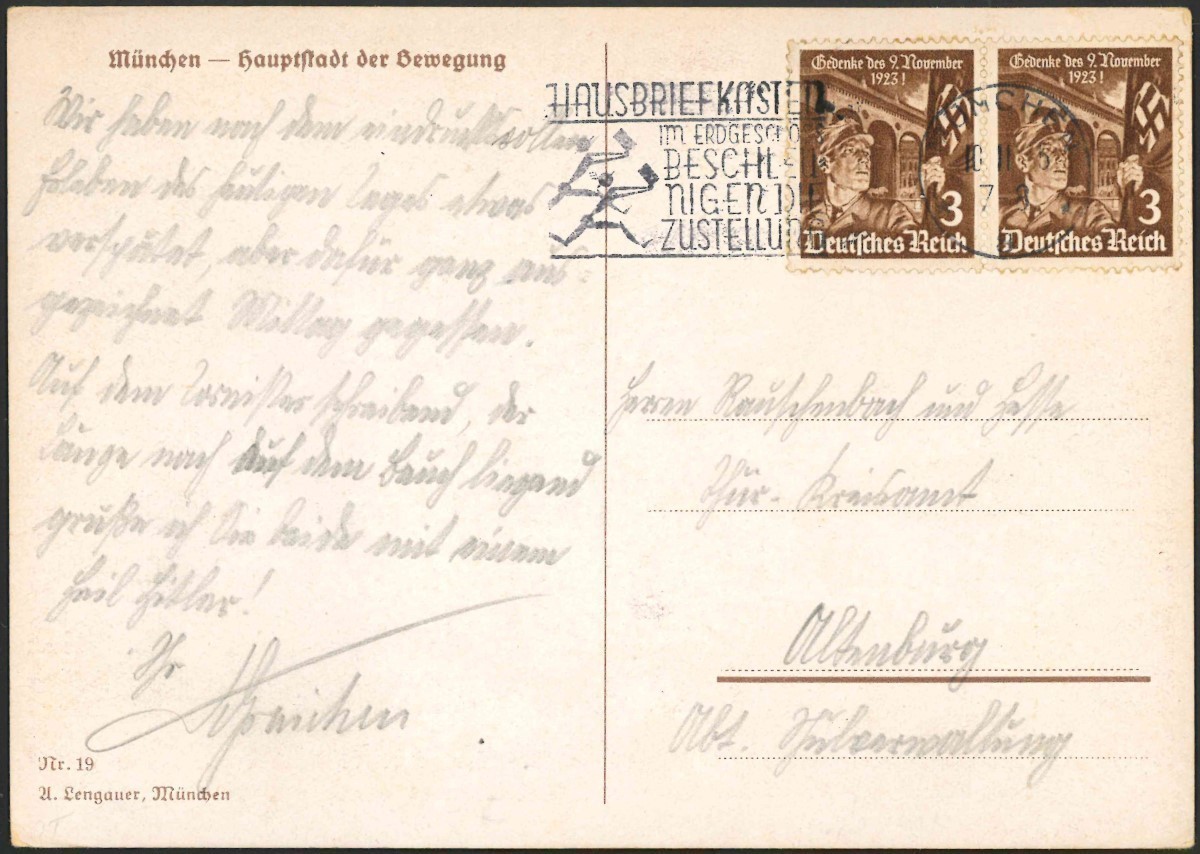 München — Hauptstadt der Bewegung
Wir haben nach dem eindrucksvollen
Erleben des heutigen Tages etwas
verspätet, aber dafür ganz aus-
gezeichnet Mittag gegessen.
Auf dem Tornister schreibend, der
Länge nach auf dem Bauch liegend
grüße ich Sie beide mit einem
Heil Hitler!
Ihr
Nr. 19
A. Lengauer, München
HAUSBRIEFKÄSTEN
IM ERDGESCHOSS
BESCHLEU
NIGEN DIE
ZUSTELLUNG
Gedenke des 9. November
1923!
3
Deutsches Reich
Gedenke des 9. November
1923!
3
Deutsches Reich
MÜNCHEN
Herren Rauschenbach und Hesse
Thür. Kreisamt
Altenburg
Abt. Schulverwaltung